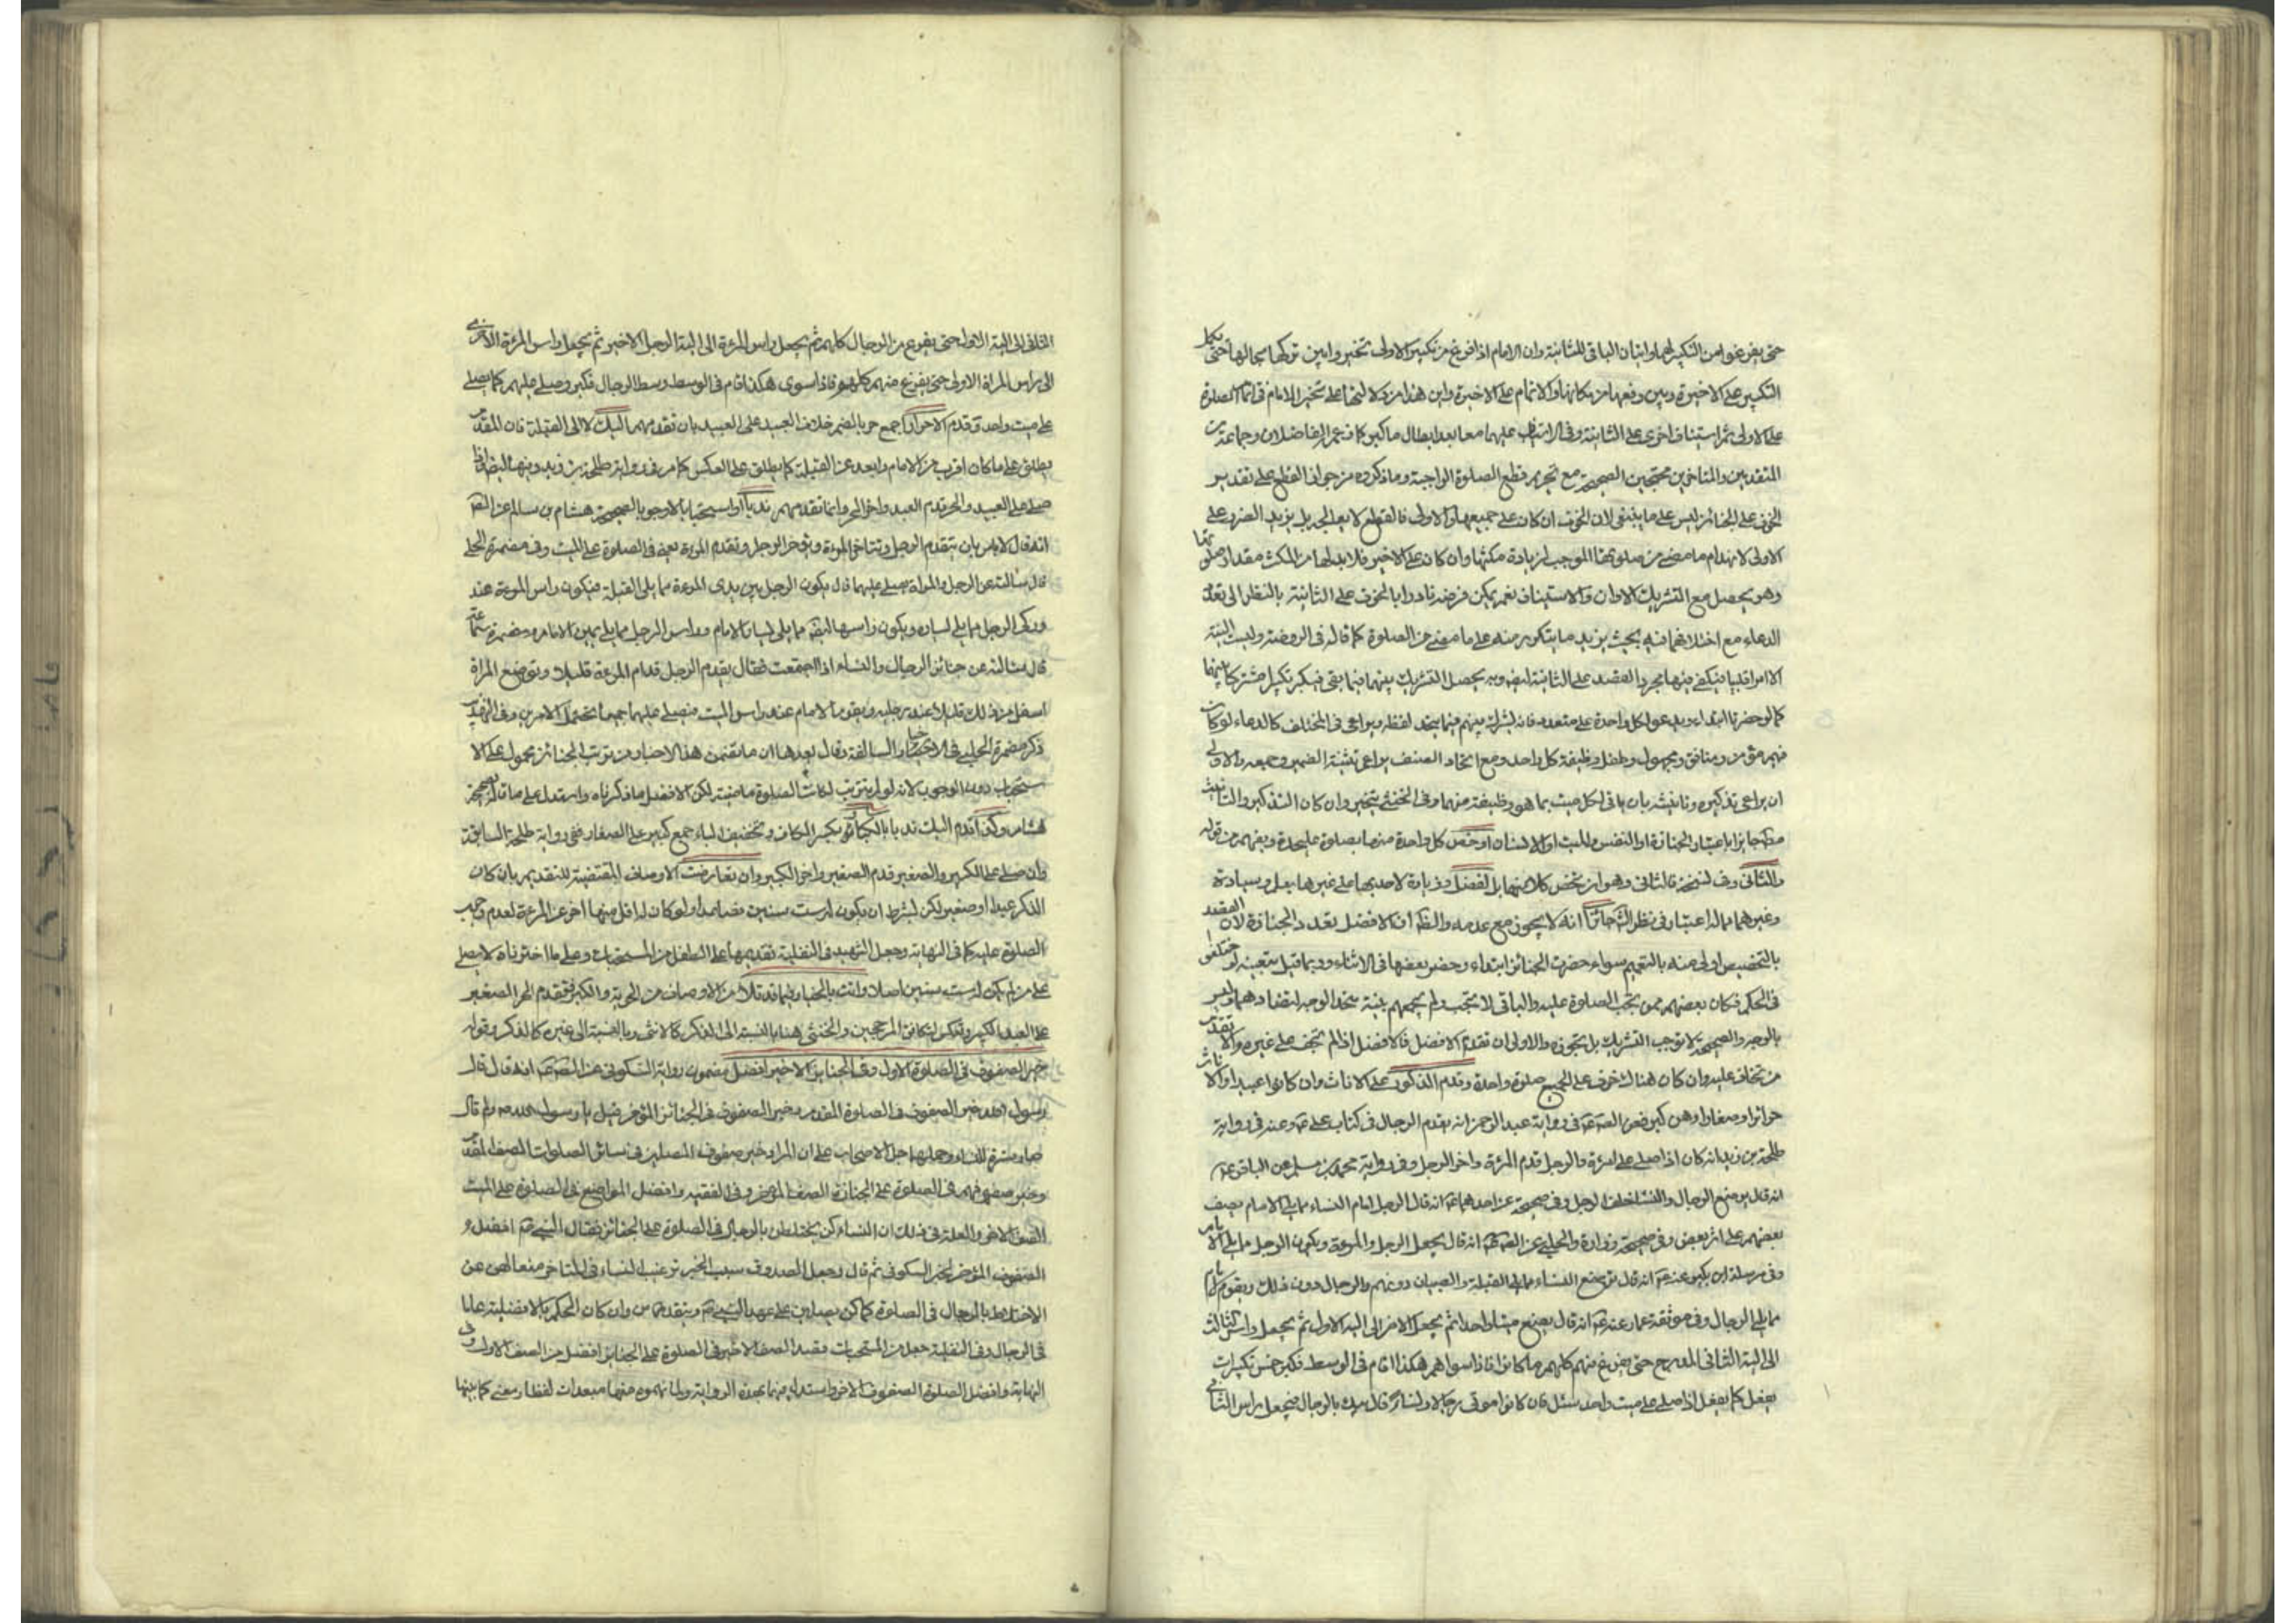 حتى يفرغوا من التكبير لهما واتيان الباقي للثانية وان الامام اذا فرغ من تكبير الاولى تخير وابين تركها بحالها حتى يكمل
التكبير على الاخيرة وبين رفعها من مكانها والاتمام على الاخيرة واين هذا من دلالتها على تخير الامام في اتمام الصلوة
على الاولى ثم استيناف اخرى على الثانية وفي عليهما معا بعد ابطال ما كبر كما زعم الفاضلان وجماعة من
المتقدمين والمتاخرين محتجين بالصحيحة مع تحريم قطع الصلوة الواجبة وما ذكروه من جواز القطع على تقدير
الخوف على الجنائز ليس على ما ينبغي لان الخوف ان كان على جميعها او الاولى فالقطع لا بعد الجديد يزيد الضرر على
الاولى لانهدام ما مضى من صلوتها الموجب لزيادة مكثها وان كان على الاخير فلا بد لها من المكث مقدار صلوتها
وهو يحصل مع التشريك الاوان والاستيناف نعم يمكن فرضه نادرا بالخوف على الثانية بالنظر الى تعدد
الدعاء مع اختلافهما فيه بحيث يزيد ما يتكرر منه على ما مضى من الصلوة كما قاله في الروضة وليست النية
الا امرا قلبيا فيكفي فيها مجرد القصد على الثانية ايضا وبه يحصل التشريك بينهما فيما بقي فيكبر تكبيرا مشتركا بينهما
كما لو حضرتا ابتداء ويدعو لكل واحدة على متعدد فانه يشرك بينهم فيما يتحد لفظه ويراعي في المختلف كالدعاء لو كان
فيهم مؤمن ومنافق ومجهول وطفل وظيفة كل واحد ومع اتحاد الصنف يراعي تثنية الضمير وجمعه والاولى
ان يراعي تذكيره وتانيثه بان ياتي لكل ميت بما هو وظيفته منهما وفي الخنثى يتخير وان كان التذكير والتانيث
مطلقا جايزا باعتبار الجنازة او النفس والميت او الانسان او خص كل واحدة منهما بصلوة عليحدة ويفهم من قوله
والثاني وفي نسخة فالثاني وهو ان يخص كلا منهما بل افضل وزيادة لاحديهما على غيرها بعلم وسيادة
وغيرهما مما له اعتبار في نظر الشرع جائزا انه لا يجوز مع عدمه والظاهر ان الافضل تعدد الجنازة لان القصد
بالتخصيص اولى منه بالتعميم سواء حضرت الجنائز ابتداء وحضر بعضها في الاثناء وربما قيل بتعينه لو اختلفن
في الحكم فكان بعضهم ممن يجب الصلوة عليه والباقي لا يجب ولم يجمعهم بنية متحد الوجه لتضادهما وليس
بالوجه والصحيحة لا توجب التشريك بل تجوزه والاولى ان تقدم الافضل فالافضل اذا لم تخف على غيره والا تقدم
من تخاف عليه وان كان هنالك خوف على الجميع صلوة واحدة وقدم الذكور على الاناث وان كانوا عبيدا والاناث
حرائر او صغارا وهن كبر فعن الص ع في رواية عبد الرحمن انه يقدم الرجال في كتاب علي ع وعنه في رواية
طلحة بن زيد انه كان اذا صلى على المرئة والرجل قدم المرئة واخر الرجل وفي رواية محمد بن مسلم عن الباقر ع
انه قال يوضع الرجال والنساء خلف الرجل وفي صحيحة عن احدهما ع انه قال الرجل امام النساء مما يلي الامام يصف
بعضهم على اثر بعض وفي صحيحة زرارة والحلبي عن الص ع انه قال يجعل الرجل والمرءة ويكون الرجل مما يلي الامام
وفي مرسلة ابن بكير عنه ع انه قال توضع النساء مما يلي القبلة والصبيان دونهم والرجال دون ذلك ويقوم الامام
مما يلي الرجال وفي موثقة عمار عنه ع انه قال يضع ميتا واحدا ثم يجعل الاخر الى الية الاول ثم يجعل راس الثالث
الى الية الثاني المدرج حتى يفرغ منهم كلهم ما كانوا فاذا سواهم هكذا قام في الوسط فكبر خمس تكبيرات
يفعل كما يفعل اذا صلى على ميت واحد سئل فان كانوا موتى رجالا ونساء قال يبدء بالرجال فيجعل راس الثاني
الى الية الاول حتى يفرغ من الرجال كلهم ثم يجعل راس المرئة الى الية الرجل الاخير ثم يجعل راس المرئة الاخرى
الى راس المراة الاولى حتى يفرغ منهم كلهم فاذا سوى هكذا قام في الوسط وسط الرجال فكبر وصلى عليهم كما يصلي
على ميت واحد وقدم الاحرار جمع حر بالضم خلاف العبيد على العبيد بان تقدمهم اليك لا الى القبلة فان المقدم
يطلق على ما كان اقرب من الامام وابعد عن القبلة كما يطلق على العكس كما مر في رواية طلحة بن زيد وفيها ايضا واذا
صلى على العبيد والحر قدم العبد واخر الحر وانما تقدمهم ندبا او استحبابا لا وجوبا لصحيحة هشام بن سالم عن الص
انه قال لا باس بان يتقدم الرجل وتتاخر المرءة ويؤخر الرجل وتقدم المرءة يعني في الصلوة على الميت وفي مضمرة الحلبي
قال سالت عن الرجل والمراة يصلى عليهما قال يكون الرجل بين يدي المرءة مما يلي القبلة فيكون راس المرءة عند
وركي الرجل مما يلي يساره ويكون راسها ايضا مما يلي يسار الامام وراس الرجل مما يلي يمين الامام ومضمرة سماعة
قال سالته عن جنائز الرجال والنساء اذا اجتمعت فقال يقدم الرجل قدام المرءة قليلا وتوضع المراة
اسفل من ذلك قليلا عند رجليه ويقوم الامام عند راس الميت فيصلي عليهما جميعا لتحمل الامرين وفي التهذيب
ذكر مضمرة الحلبي في الاخبار السالفة وقال بعدها ان ما تضمن هذا الاخبار من ترتب الجنائز محمول على الا
ستحباب دون الوجوب لانه لو لم يترتب لكانت الصلوة ماضية لكن الافضل ما ذكرناه واستدل على ما قاله بصحيحة
هشام وكذا قدم اليك ندبا بالكبار بكسر الكاف وتخفيف الباء جمع كبير على الصغار ففي رواية طلحة السابقة
وان صلى على الكبير والصغير قدم الصغير واخر الكبير وان تعارضت الاوصاف المقتضية للتقديم بان كان
الذكر عبدا او صغير لكن بشرط ان يكون له ست سنين فصاعدا ولو كان له اقل منها اخر عن المرءة لعدم وجوب
الصلوة عليه كما في النهاية وجعل الشهيد في النفلية تقديمها على الطفل من المستحبات وعلى ما اخترناه لا يصلى
على من لم يكن له ست سنين اصلا وانت بالخيار فيما قد تلا من الاوصاف من الحرية والكبر فتقدم الحر الصغير
على العبد الكبير وتعكس لتكافئ المرجحين والخنثى هنا بالنسبة الى الذكر كالانثى وبالنسبة الى غيره كالذكر وقوله
خير الصفوف في الصلوة الاول وفي الجنايز الاخير افضل مضمون رواية السكوني عن الص ع انه قال قال
رسول الله خير الصفوف في الصلوة المقدم وخير الصفوف في الجنائز المؤخر قيل يا رسول الله ولم قال
صار سترة للنساء وحملها جل الاصحاب على ان المراد خير صفوف المصلين في سائر الصلوات الصف المقدم
وخير صفوفهم في الصلوة على الجنازة الصف المؤخر وفي الفقيه وافضل المواضع في الصلوة على الميت
الصف الاخير والعلة في ذلك ان النساء كن يختلطن بالرجال في الصلوة على الجنائز فقال النبي ص افضل و
الصفوف المؤخر لخبر السكوني ثم قال وجعل الصدوق سبب الخبر ترغيب النساء في التاخر منعا لهن عن
الاختلاط بالرجال في الصلوة كما كن يصلين على عهد النبي ص ويتقدمن وان كان الحكم بالافضلية عاما
في الرجال وفي النفلية جعل من المستحبات قصد الصف الاخير في الصلوة على الجنايز افضل من الصف الاول وفي
النهاية وافضل الصلوة الصفوف الاخر واستدلوا بهذه الرواية وما فهموه منها مبعدات لفظا ومعنى كما بينها